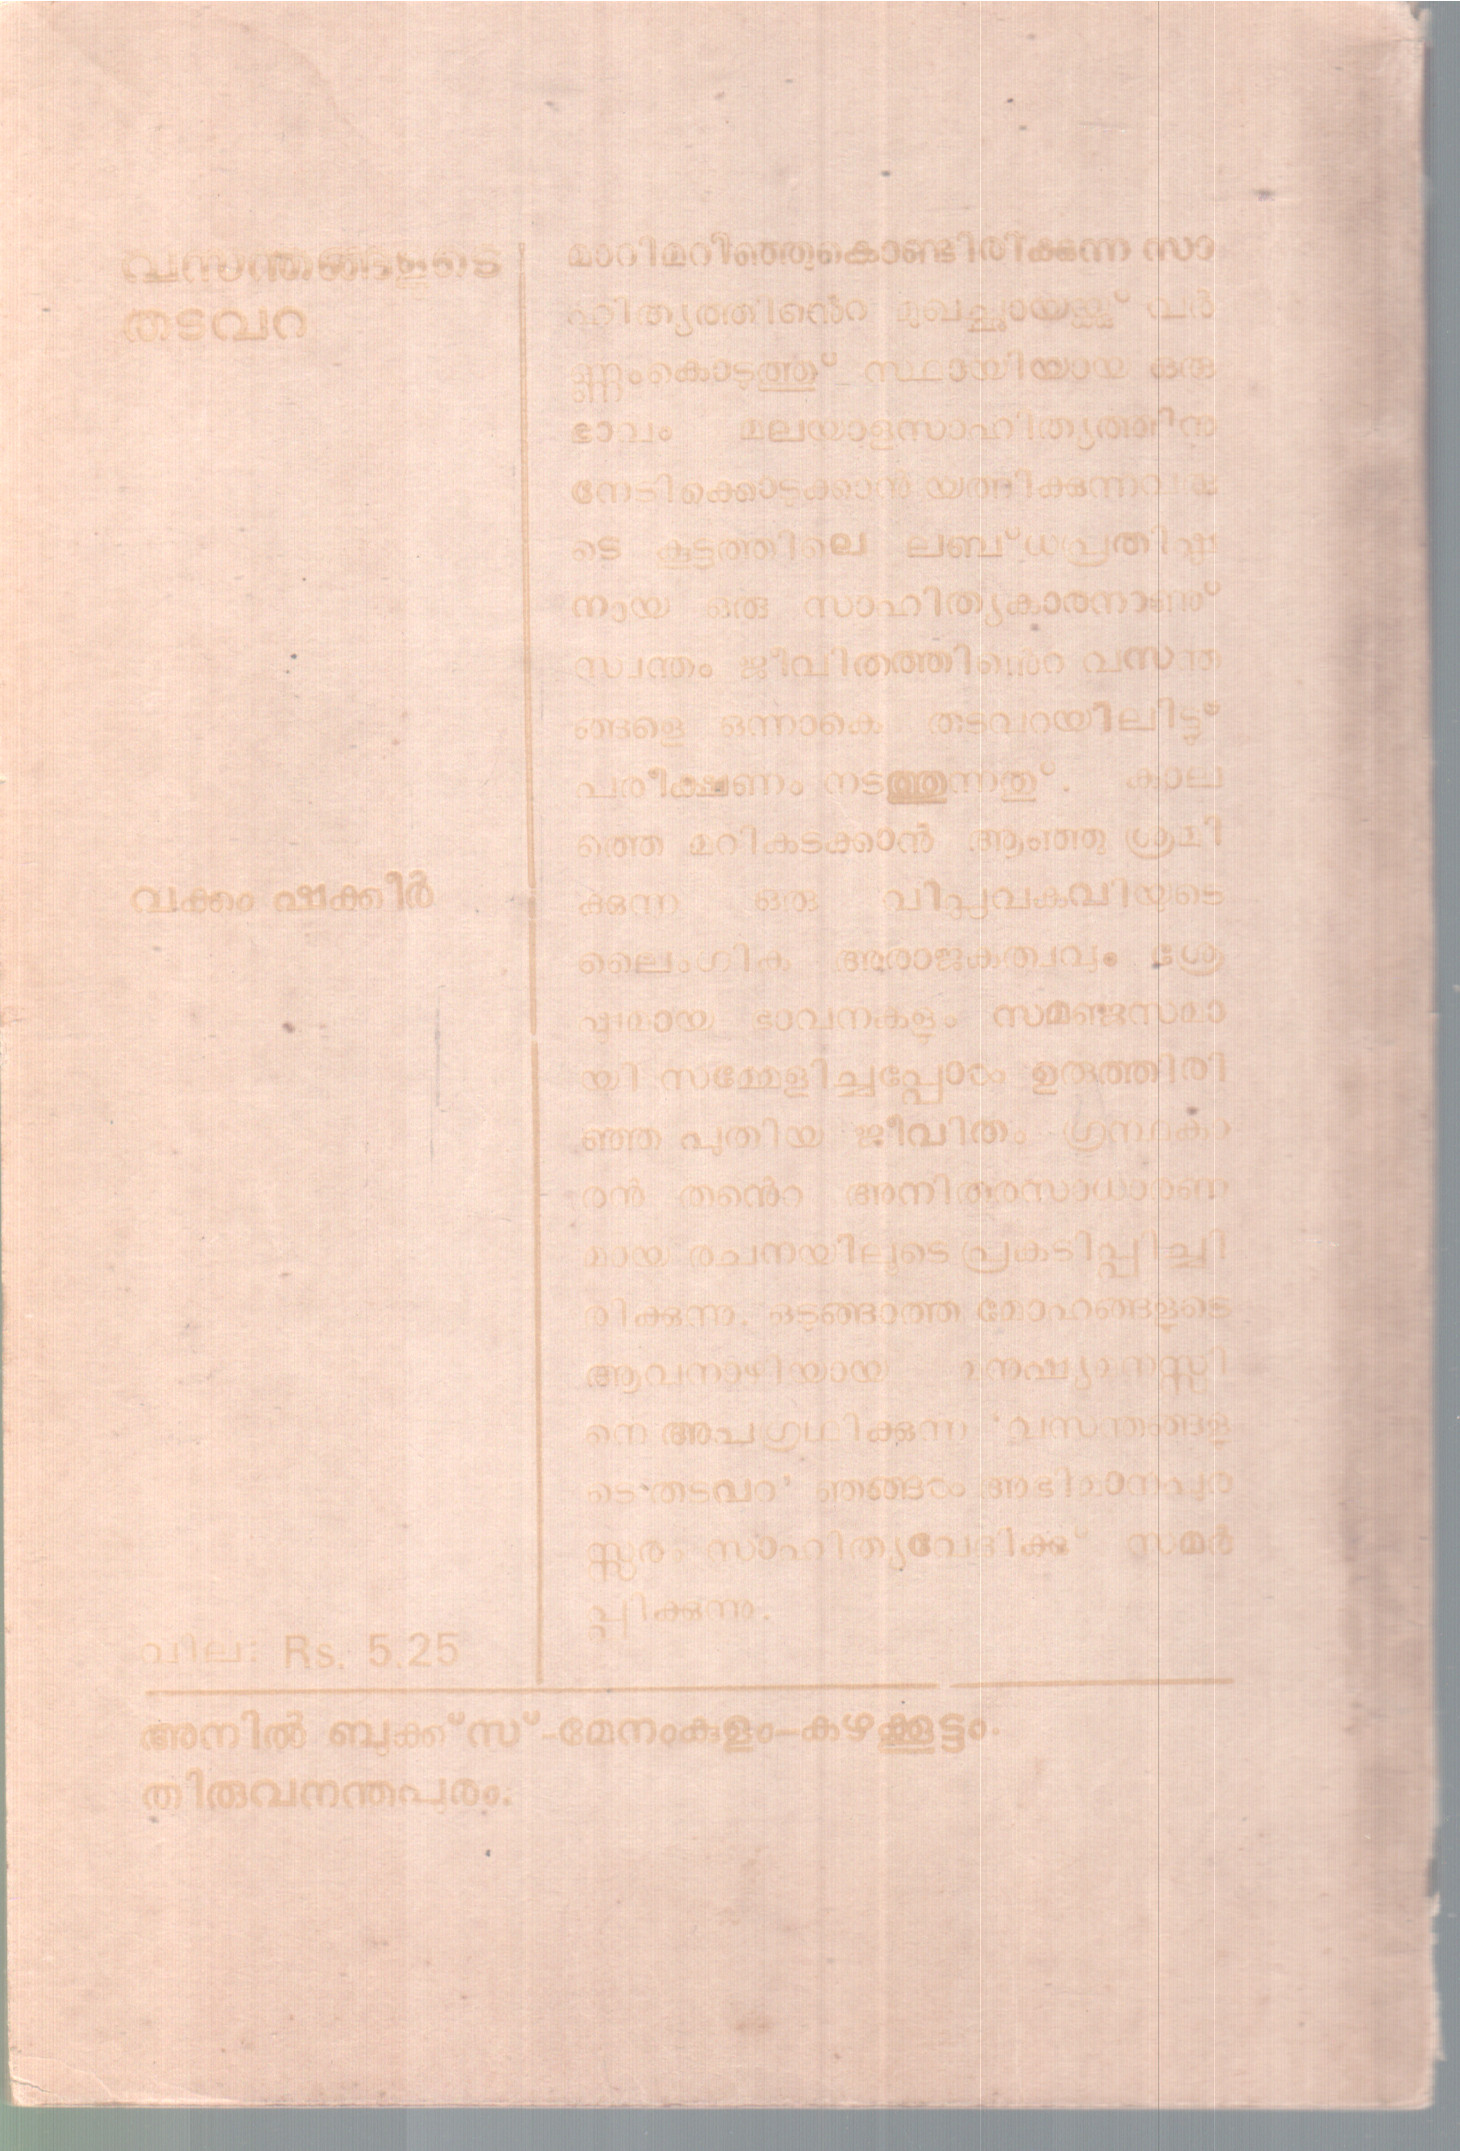 വസന്തങ്ങളുടെ
തടവറ
വക്കം ഷക്കീർ
വില: Rs. 5.25
മാറിമറിഞ്ഞുകൊണ്ടിരിക്കുന്ന സാ
ഹിത്യത്തിൻെറ മുഖച്ഛായയ്ക്ക് വർ
ണ്ണംകൊടുത്ത് സ്ഥായിയായ ഒരു
ഭാവം മലയാളസാഹിത്യത്തിനു
നേടിക്കൊടുക്കാൻ യത്നിക്കുന്നവരു
ടെ കൂട്ടത്തിലെ ലബ്ധപ്രതിഷ്ഠ
നായ ഒരു സാഹിത്യകാരനാണ്
സ്വന്തം ജീവിതത്തിൻെറ വസന്ത
ങ്ങളെ ഒന്നാകെ തടവറയിലിട്ട്
പരീക്ഷണം നടത്തുന്നത്. കാല
ത്തെ മറികടക്കാൻ ആഞ്ഞു ശ്രമി
ക്കുന്ന ഒരു വിപ്ലവകവിയുടെ
ലൈംഗിക അരാജകത്വവും ശ്രേ
ഷ്ഠമായ ഭാവനകളും സമഞ്ജസമാ
യി സമ്മേളിച്ചപ്പോൾ ഉരുത്തിരി
ഞ്ഞ പുതിയ ജീവിതം ഗ്രന്ഥകാ
രൻ തൻെറ അനിതരസാധാരണ
മായ രചനയിലൂടെ പ്രകടിപ്പിച്ചി
രിക്കുന്നു. ഒടുങ്ങാത്ത മോഹങ്ങളുടെ
ആവനാഴിയായ മനുഷ്യമനസ്സി
നെ അപഗ്രഥിക്കുന്ന 'വസന്തങ്ങളു
ടെ തടവറ' ഞങ്ങൾ അഭിമാനപുര
സ്സരം സാഹിത്യവേദിക്കു് സമർ
പ്പിക്കുന്നു.
അനിൽ ബുക്ക്സ്-മേനംകുളം-കഴക്കൂട്ടം.
തിരുവനന്തപുരം.